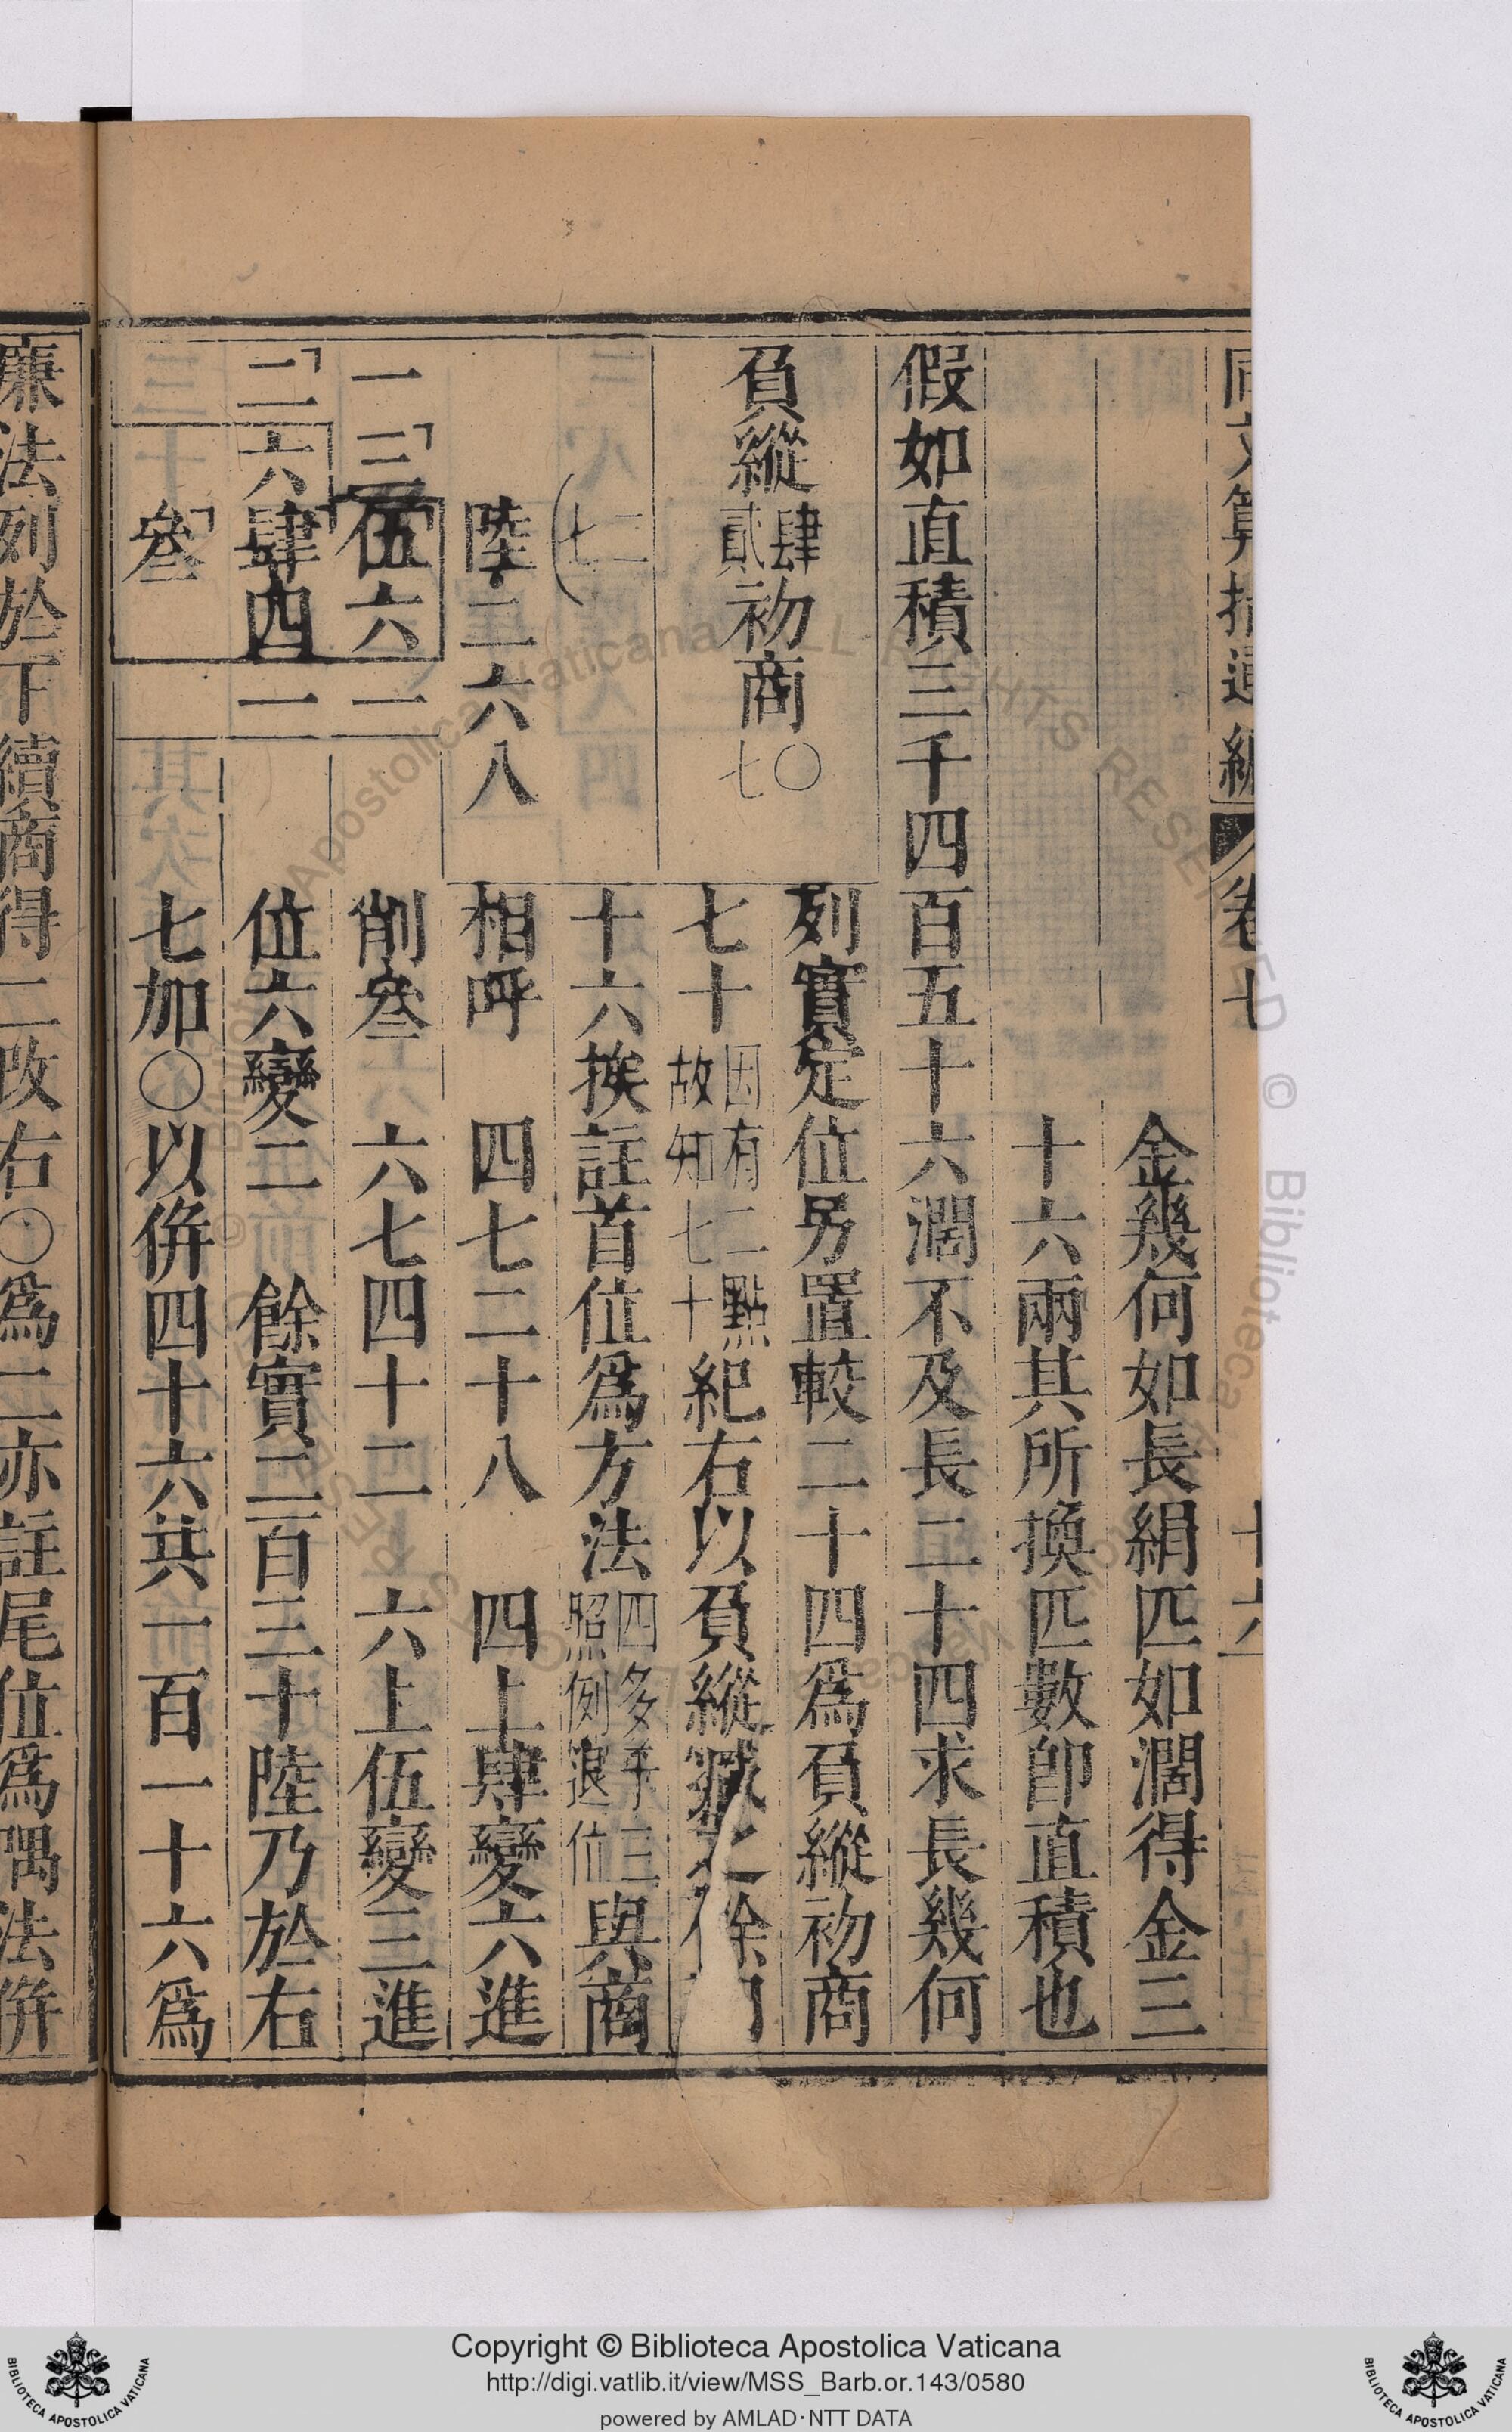 金幾何如長絹匹如濶得金三
十六兩其所換匹數卽直積也
假如直積三千四百五十六濶不及長二十四求長幾何
負縱
肆
貳
初商
〇
七
二
七
陸二六八
一三伍六一
二六肆四一
叁
列實定位另置較二十四爲負縱初商
七十
因有二點
故知七十
紀右以負縱減之餘
十六挨註首位爲方法
四多乎三
照例退位
與商
相呼 四七二十八 四上肆變六進
削叁 六七四十二 六上伍變三進
位六變二 餘實二百三十陸乃於右
七加〇以併四十六共一百一十六爲
廉法列於下續商得二改右〇爲二亦註尾位爲隅法併
卷七
十六
Copyright © Biblioteca Apostolica Vaticana
http://digi.vatlib.it/view/MSS_Barb.or.143/0580
powered by AMLAD·NTT DATA
BIBLIOTECA APOSTOLICA VATICANA
BIBLIOTECA APOSTOLICA VATICANA